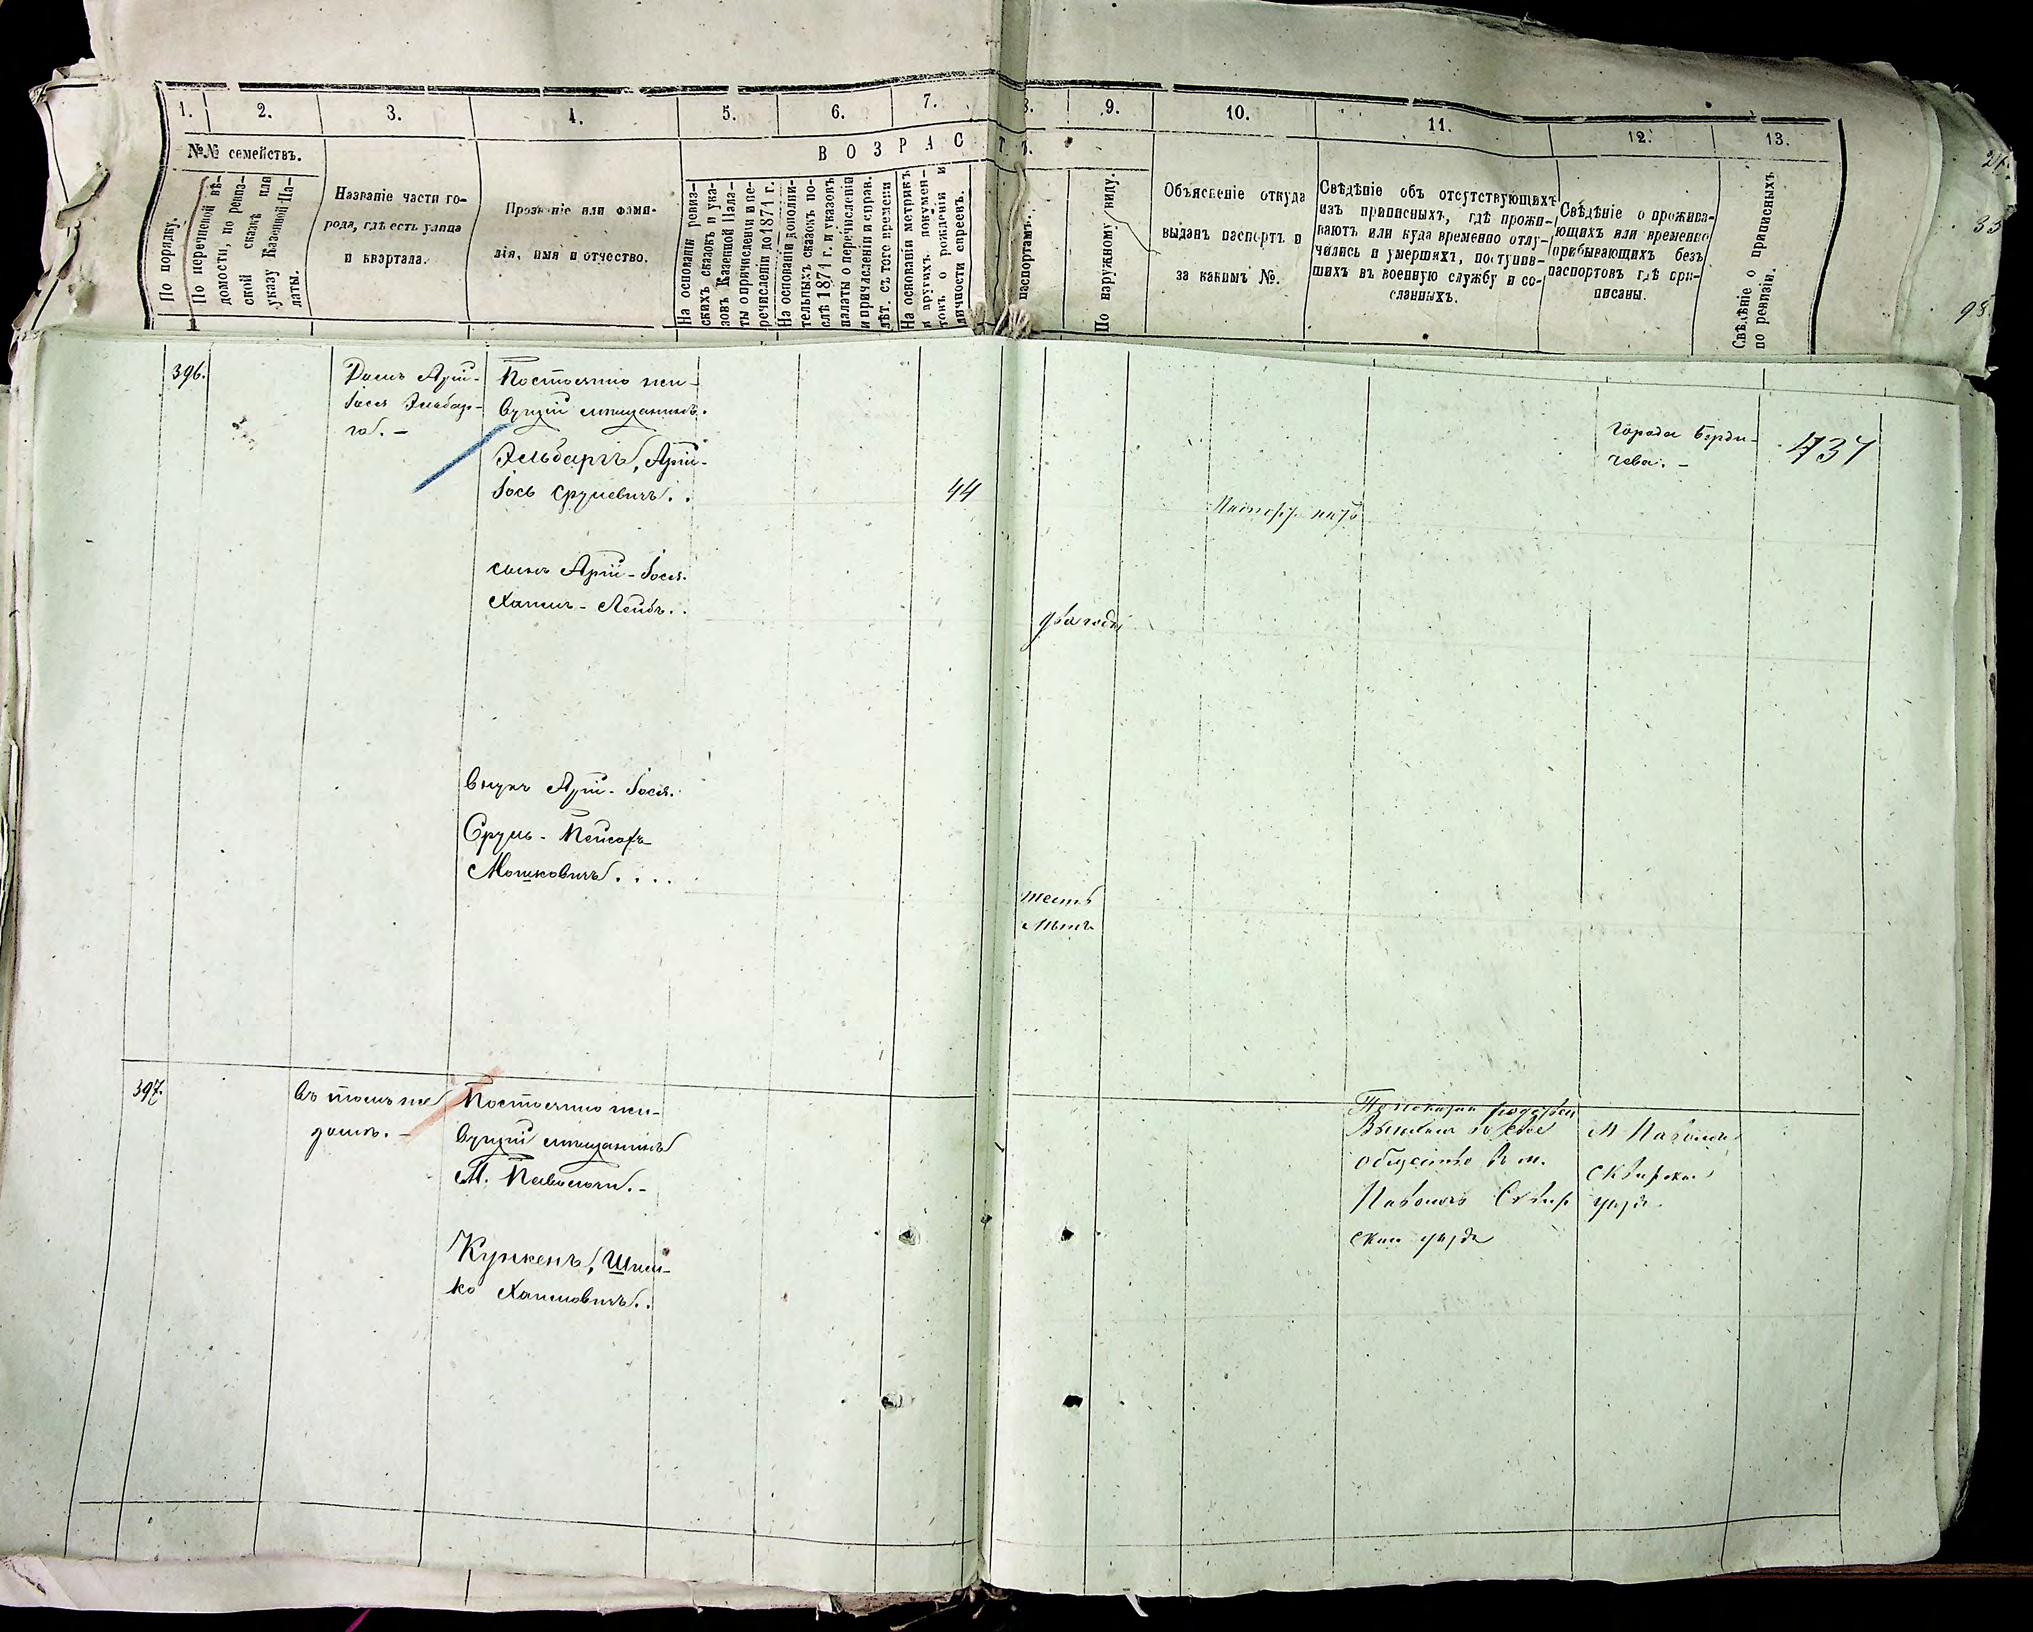 1. 2. 3. 4. 5. 6. 7. 8. 9. 10. 11. 12. 13.
№№ семействъ.
В О З Р А С Т Ъ.
По порядку.
По перечневой вѣ-
домости, по ревиз-
ской сказкѣ или
указу Казенной Па-
латы.
Названіе части го-
рода, гдѣ есть улица
и квартала.
Прозваніе или фами-
лія, имя и отчество.
На основаніи ревиз-
скихъ сказокъ и ука-
зовъ Казенной Пала-
ты о причисленіи и пе-
речисленіи до 1871 г.
На основаніи дополни-
тельныхъ сказокъ по-
слѣ 1871 г. и указовъ
палаты о перечисленіи
и причисленіи и справ.
лѣт. съ того времени
На основаніи метрикъ
и другихъ докумен-
товъ о рожденіи и
личности евреевъ.
паспортамъ.
По наружному виду.
Объясненіе откуда
выданъ паспортъ и
за какимъ №.
Свѣдѣніе объ отсутствующихъ
изъ приписныхъ, гдѣ прожи-
ваютъ или куда временно отлу-
чились и умершихъ, поступив-
шихъ въ военную службу и со-
сланныхъ.
Свѣдѣніе о прожива-
ющихъ или временно
прибывающихъ безъ
паспортовъ гдѣ при-
писаны.
Свѣдѣніе о приписныхъ
по ревизіи.
396.
Домъ Арій-
Іося Эльбар-
га. –
Постоянно жи-
вущій мѣщанинъ.
Эльбаргъ, Арій-
Іось Срулевичъ. .
44
Города Берди-
чева. –
437
сынъ Арій-Іося.
Хаимъ-Лейбъ. .
два года
внукъ Арій-Іося.
Сруль-Пейсахъ
Мошковичъ. . . .
шесть
лѣтъ
397.
въ томъ же
домѣ. –
Постоянно жи-
вущій мѣщанинъ
М. Паволочи. –
Кункенъ, Шим-
ко Хаимовичъ. .
общество в м.
Паволочъ Сквир
ский уѣзд
М Паволоч
Сквирска
уѣзд.